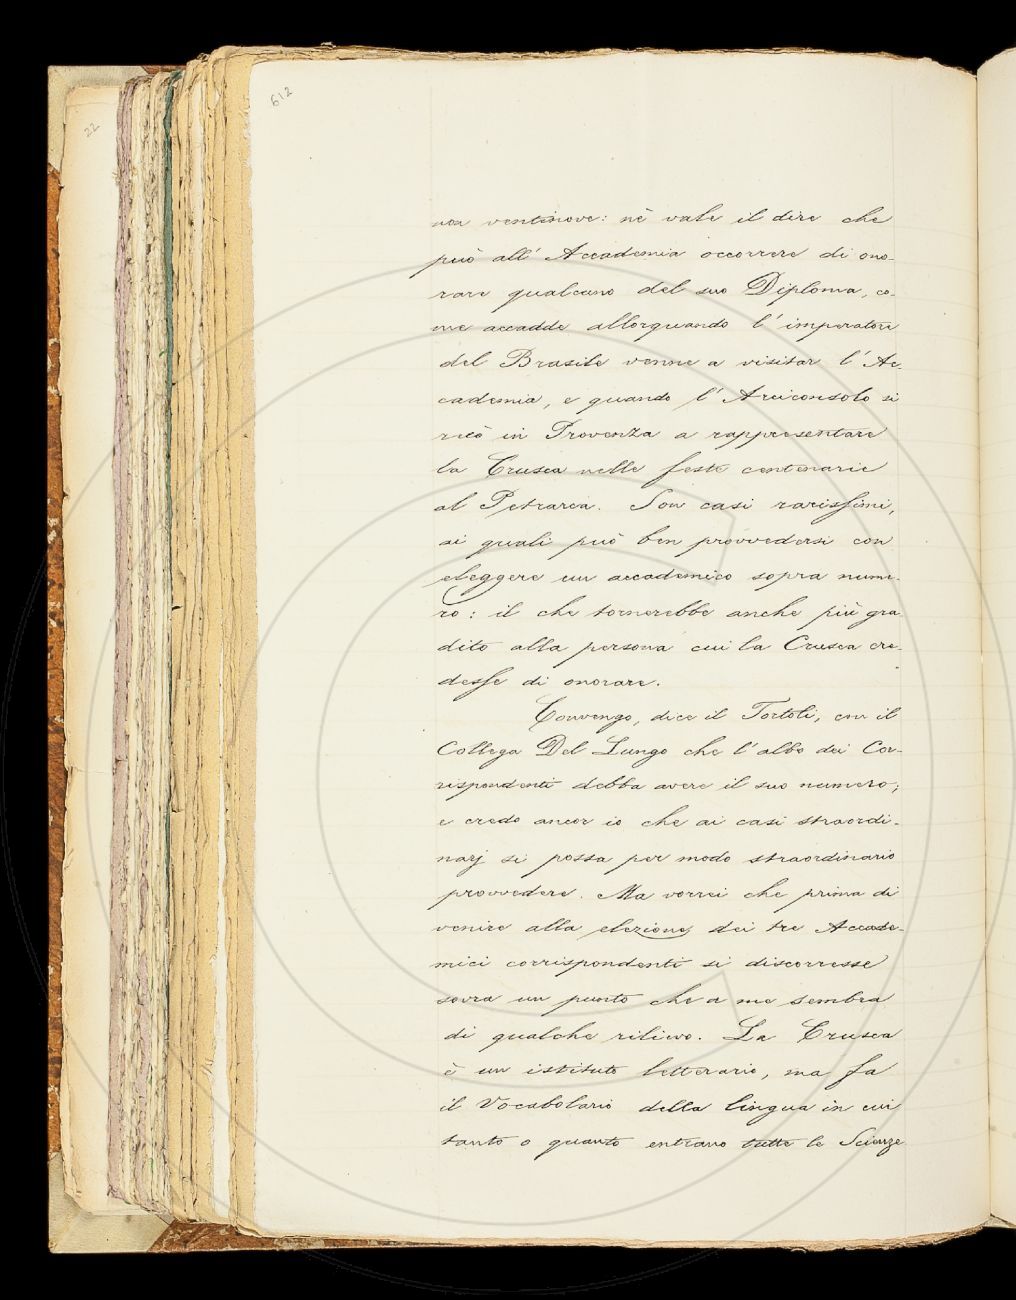 22
612
non ventinove: nè vale il dire che
può all' Accademia occorrere di ono-
rare qualcuno del suo Diploma, co-
me accadde allorquando l' imperatore
del Brasile venne a visitar l' Ac-
cademia, e quando l' Arciconsolo si
recò in Provenza a rappresentare
la Crusca nelle feste centenarie
al Petrarca. Son casi rarissimi,
ai quali può ben provvedersi con
eleggere un accademico sopra nume-
ro: il che tornerebbe anche più gra-
dito alla persona cui la Crusca cre-
desse di onorare.
Convengo, dice il Tortoli, con il
Collega Del Lungo che l' albo dei Cor-
rispondenti debba avere il suo numero;
e credo ancor io che ai casi straordi-
narj si possa per modo straordinario
provvedere. Ma vorrei che prima di
venire alla elezione dei tre Accade-
mici corrispondenti si discorresse
sovra un punto che a me sembra
di qualche rilievo. La Crusca
è un istituto letterario, ma fa
il Vocabolario della lingua in cui
tanto o quanto entrano tutte le Scienze